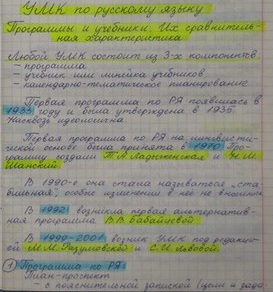 УМК по русскому языку
Программы и учебники. Их сравнитель-
ная характеристика
Любой УМК состоит из 3-х компонентов
- программа
- учебник или линейка учебников
- календарно-тематическое планирование
Первая программа по РЯ появилась в
1933 году и была утверждена в 1935.
Насквозь идеологична
Первая программа по РЯ на лингвисти-
ческой основе была принята в 1970 Про-
грамму создали Т.А. Ладыженская и Н.М.
Шанский
В 1990-е она стала называться „ста
бильная", особые изменения в нее не вносили
В 1992 возникла первая альтернатив-
ная программа В.В. Бабайцевой
В 1990-2001 возник УМК под редакци-
ей М.М. Разумовской и С.И. Львовой
1 Программа по РЯ
План-проспект
- с пояснительной запиской (цели и зада